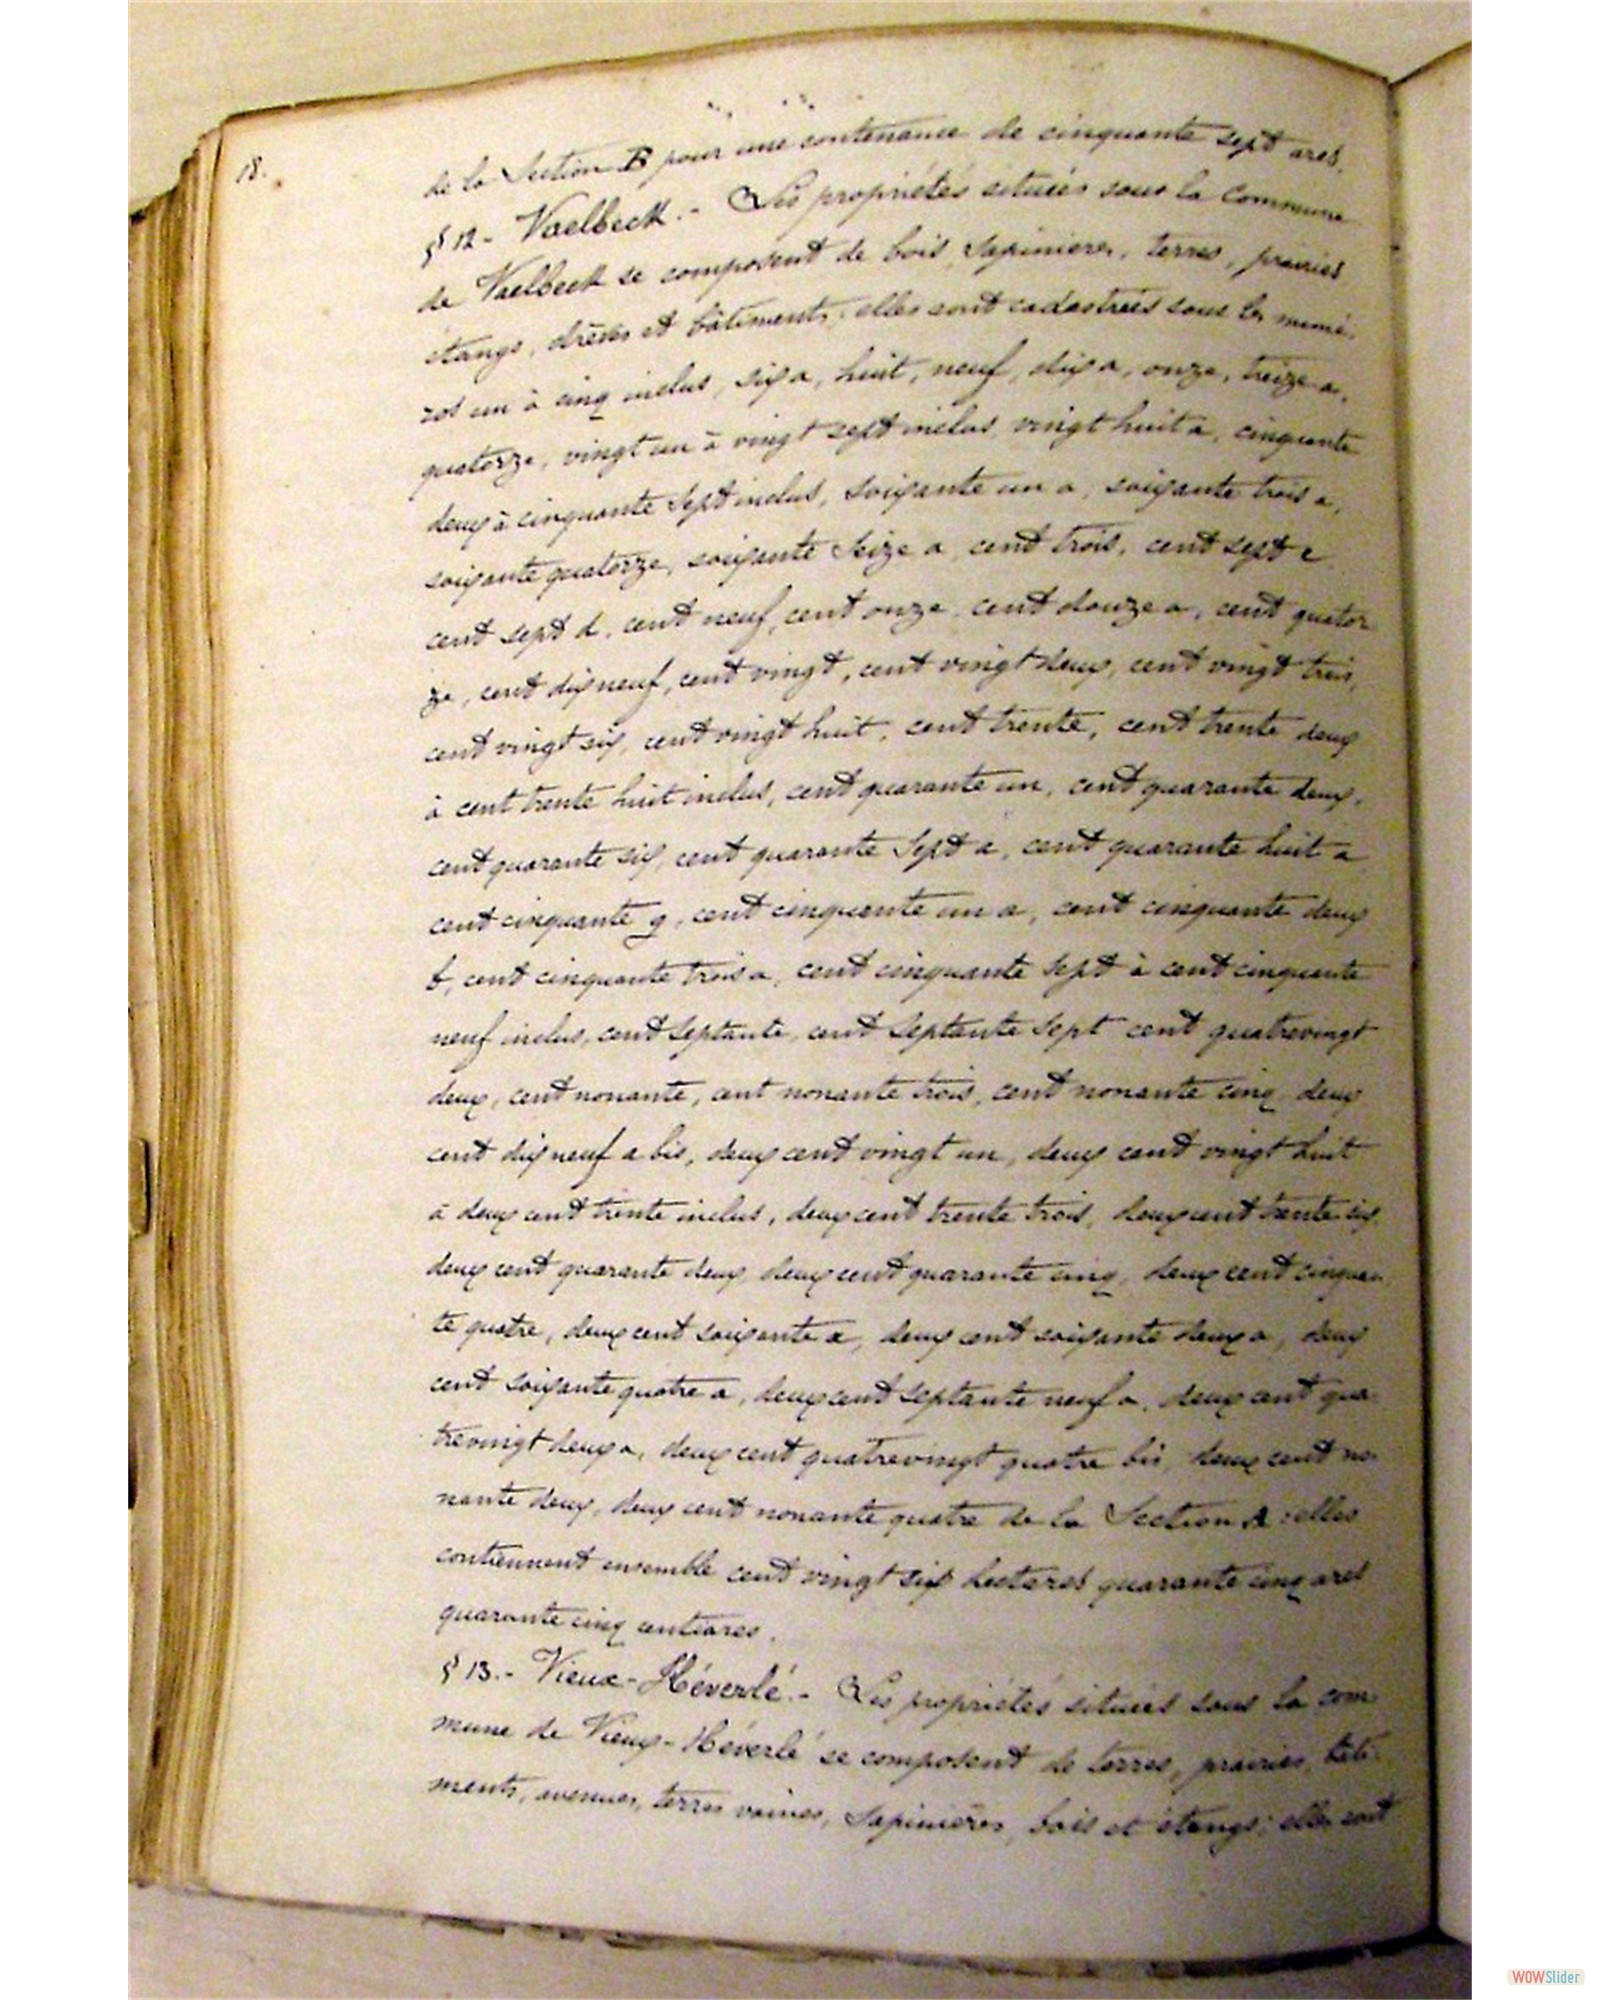 18.
de la Section B pour une contenance de cinquante sept ares.
§ 12 - Vaelbeck. - Les propriétés situées sous la Commune
de Vaelbeck se composent de bois, Sapinieres, terres, prairies
étangs, drèves et bâtiments; elles sont cadastrées sous les numé-
ros un à cinq inclus, six a, huit, neuf, dix a, onze, treize a,
quatorze, vingt un à vingt sept inclus, vingt huit a, cinquante
deux à cinquante Sept inclus, Soixante un a, soixante trois a,
soixante quatorze, soixante Seize a, cent trois, cent sept c
cent sept d, cent neuf, cent onze, cent douze a, cent quator
ze, cent dix neuf, cent vingt, cent vingt deux, cent vingt trois,
cent vingt six, cent vingt huit, cent trente, cent trente deux
à cent trente huit inclus, cent quarante un, cent quarante deux,
cent quarante six, cent quarante Sept a, cent quarante huit a
cent cinquante g, cent cinquante un a, cent cinquante deux
b, cent cinquante trois a, cent cinquante Sept à cent cinquante
neuf inclus, cent Septante, cent Septante Sept cent quatrevingt
deux, cent nonante, cent nonante trois, cent nonante cinq, deux
cent dix neuf a bis, deux cent vingt un, deux cent vingt huit
à deux cent trente inclus, deux cent trente trois, deux cent trente six,
deux cent quarante deux, deux cent quarante cinq, deux cent cinquan
te quatre, deux cent soixante a, deux cent soixante deux a, deux
cent soixante quatre a, deux cent Septante neuf a, deux cent qua
trevingt deux a, deux cent quatrevingt quatre bis, deux cent no
nante deux, deux cent nonante quatre de la Section A; elles
contiennent ensemble cent vingt six hectares quarante cinq ares
quarante cinq centiares.
§ 13. - Vieux-Héverlé. - Les propriétés situées sous la com
mune de Vieux-Héverlé se composent de terres, prairies, bâti
ments, avenues, terres vaines, Sapinières, bois et étangs; elles sont
WOWSlider